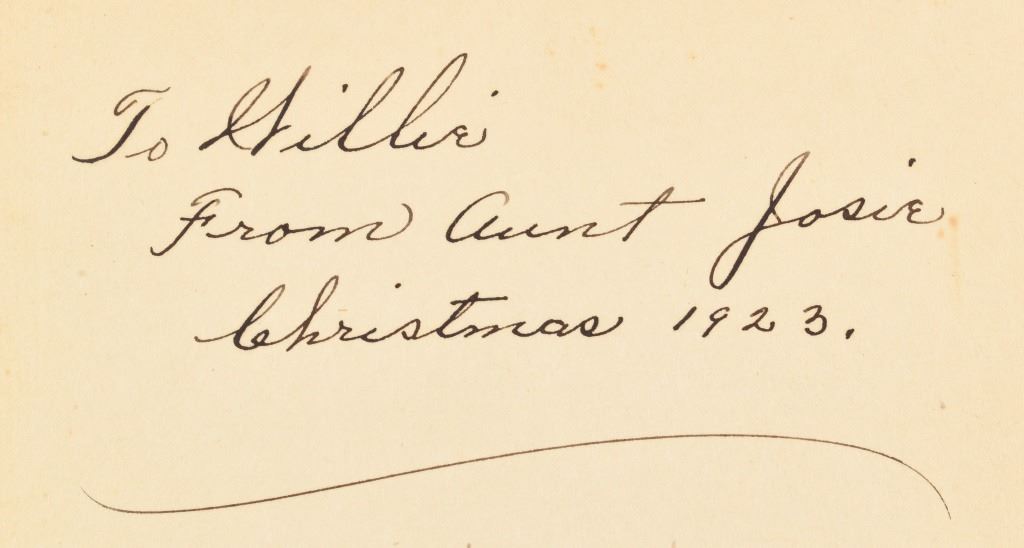 To Willie
From Aunt Josie
Christmas 1923.